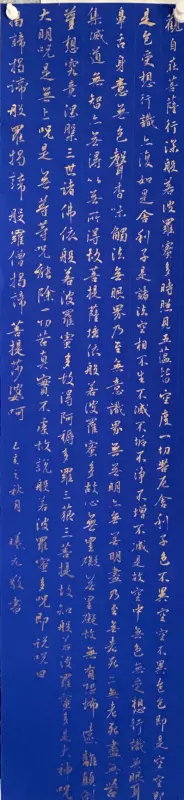 觀自在菩薩行深般若波羅蜜多時照見五蘊皆空度一切苦厄舍利子色不異空空不異色色即是空空即
是色受想行識亦復如是舍利子是諸法空相不生不滅不垢不淨不增不減是故空中無色無受想行識無眼耳
鼻舌身意無色聲香味觸法無眼界乃至無意識界無無明亦無無明盡乃至無老死亦無老死盡無苦
集滅道無智亦無得以無所得故菩提薩埵依般若波羅蜜多故心無罣礙無罣礙故無有恐怖遠離顛倒
夢想究竟涅槃三世諸佛依般若波羅蜜多故得阿耨多羅三藐三菩提故知般若波羅蜜多是大神咒是
大明咒是無上咒是無等等咒能除一切苦真實不虛故說般若波羅蜜多咒即說咒曰
揭諦揭諦 般羅揭諦 般羅僧揭諦 菩提娑婆呵 己亥之秋月 曦元敬書